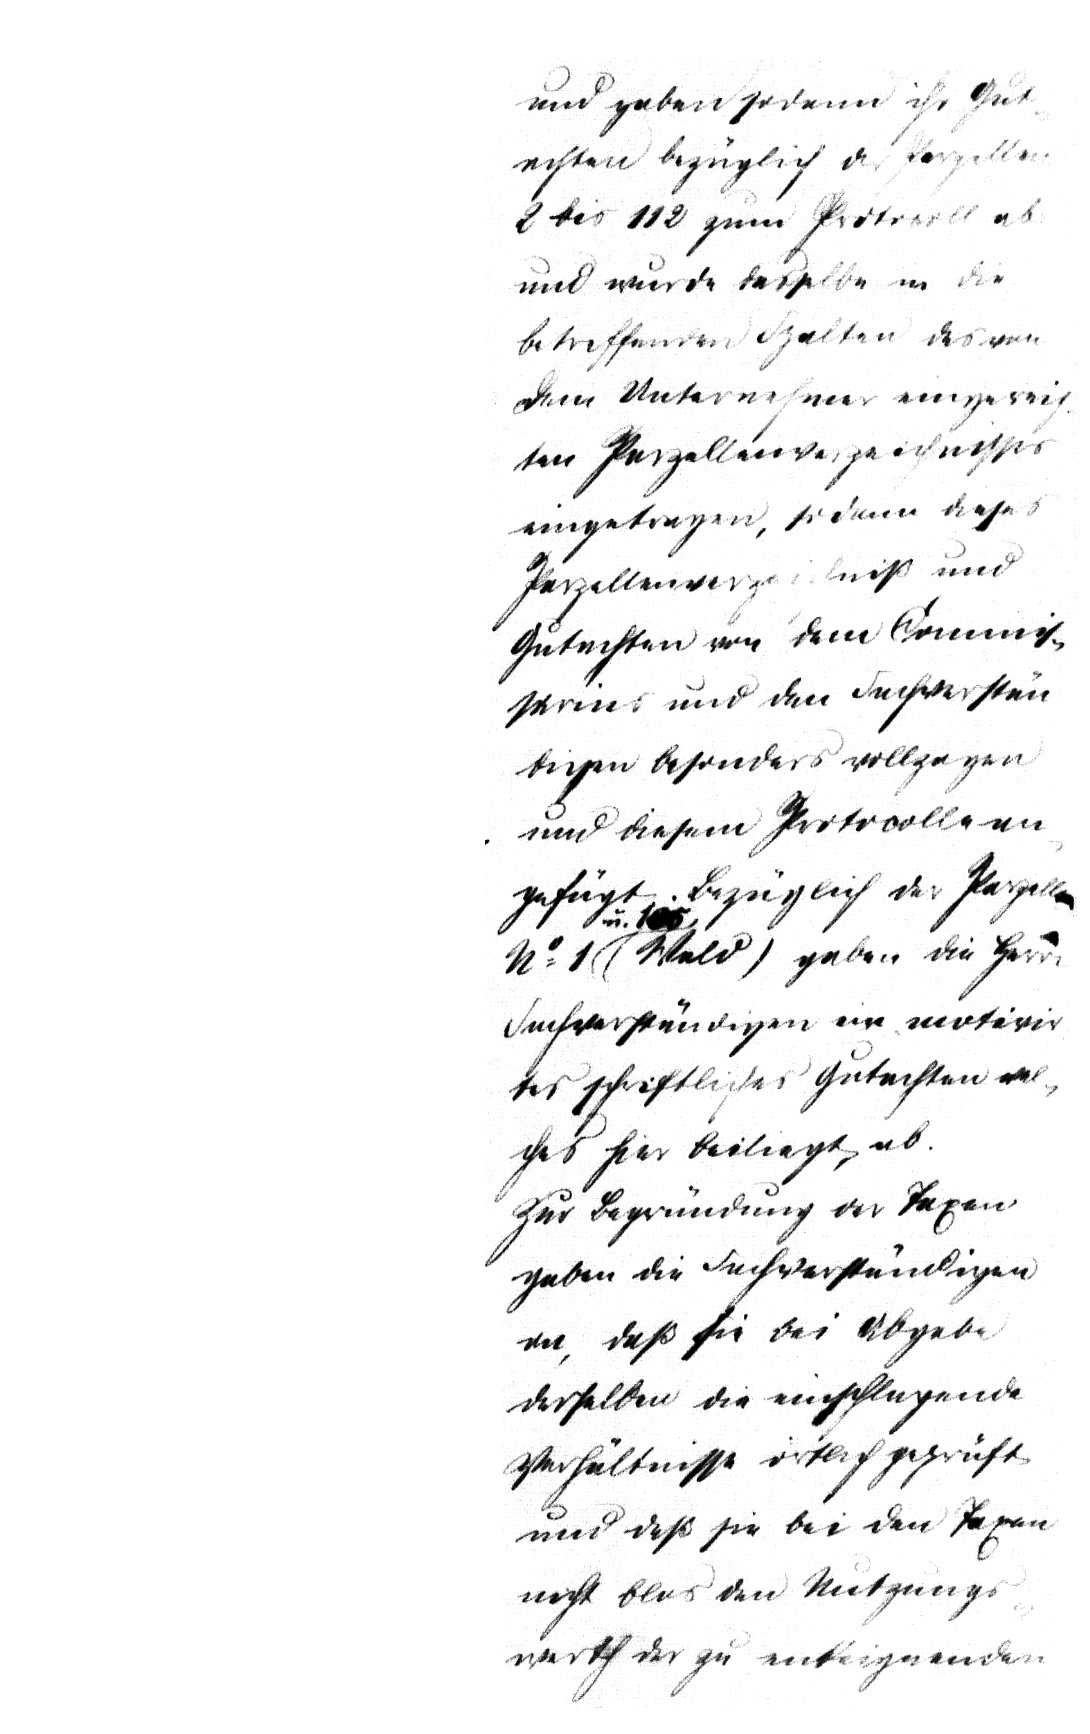 und gaben sodann ihr Gut-
achten bezüglich der Parzellen
2 bis 112 zum Protocoll ab
und wurde dasselbe in die
betreffenden Spalten des von
dem Unternehmer eingereich-
ten Parzellenverzeichnisses
eingetragen, sodann dieses
Parzellenverzeichniß und
Gutachten von dem Commis-
sarius und den Sachverstän
digen besonders vollzogen
und diesem Protocolle an-
gefügt. Bezüglich der Parzellen
u. 105,
No 1 (Wald) gaben die Herrn
Sachverständigen ein motivir
tes schriftliches Gutachten wel-
ches hier beiliegt, ab.
Zur Begründung der Taxen
gaben die Sachverständigen
an, daß sie bei Abgabe
derselben die einschlagende
Verhältnisse örtlich geprüft
und daß sie bei den Taxen
nicht blos den Nutzungs-
werth der zu enteignenden